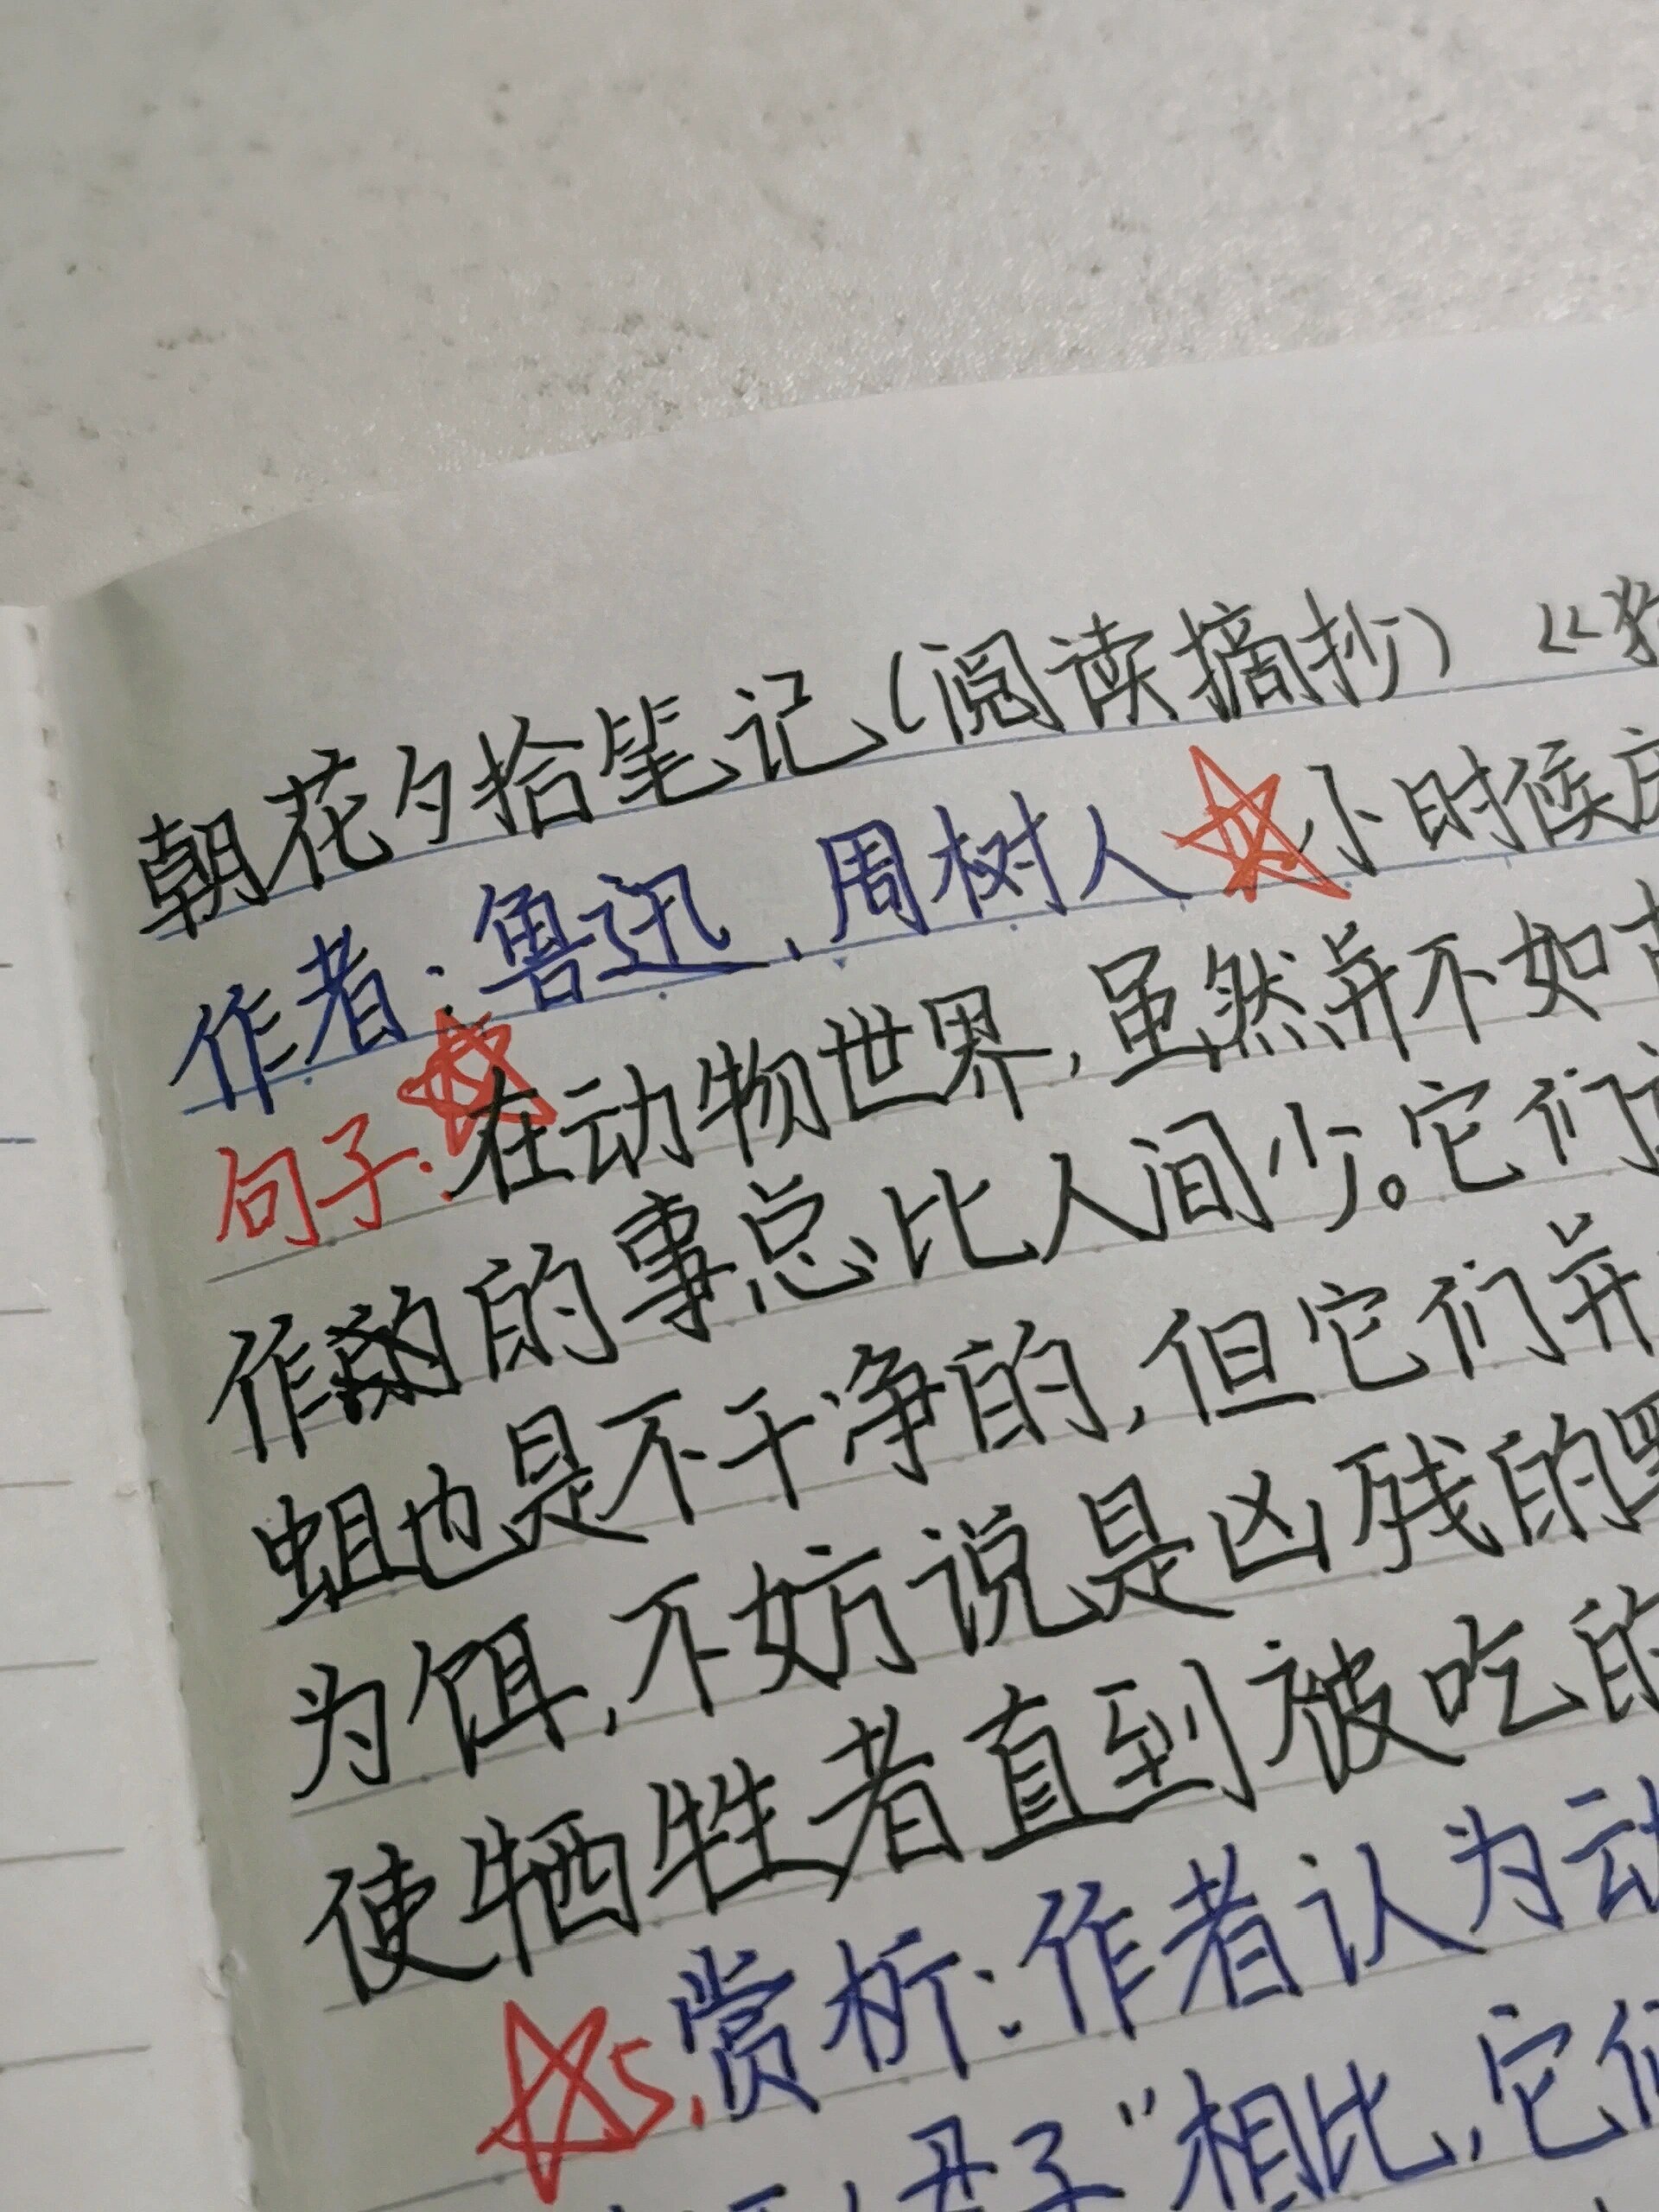 朝花夕拾笔记(阅读摘抄)《狗
作者:鲁迅,周树人 小时候
句子:在动物世界,虽然并不如古
作的事总比人间少。它们
蛆也是不干净的,但它们并
为饵,不妨说是凶残的罢
使牺牲者直到被吃的
5.赏析:作者认为动
"相比,它们